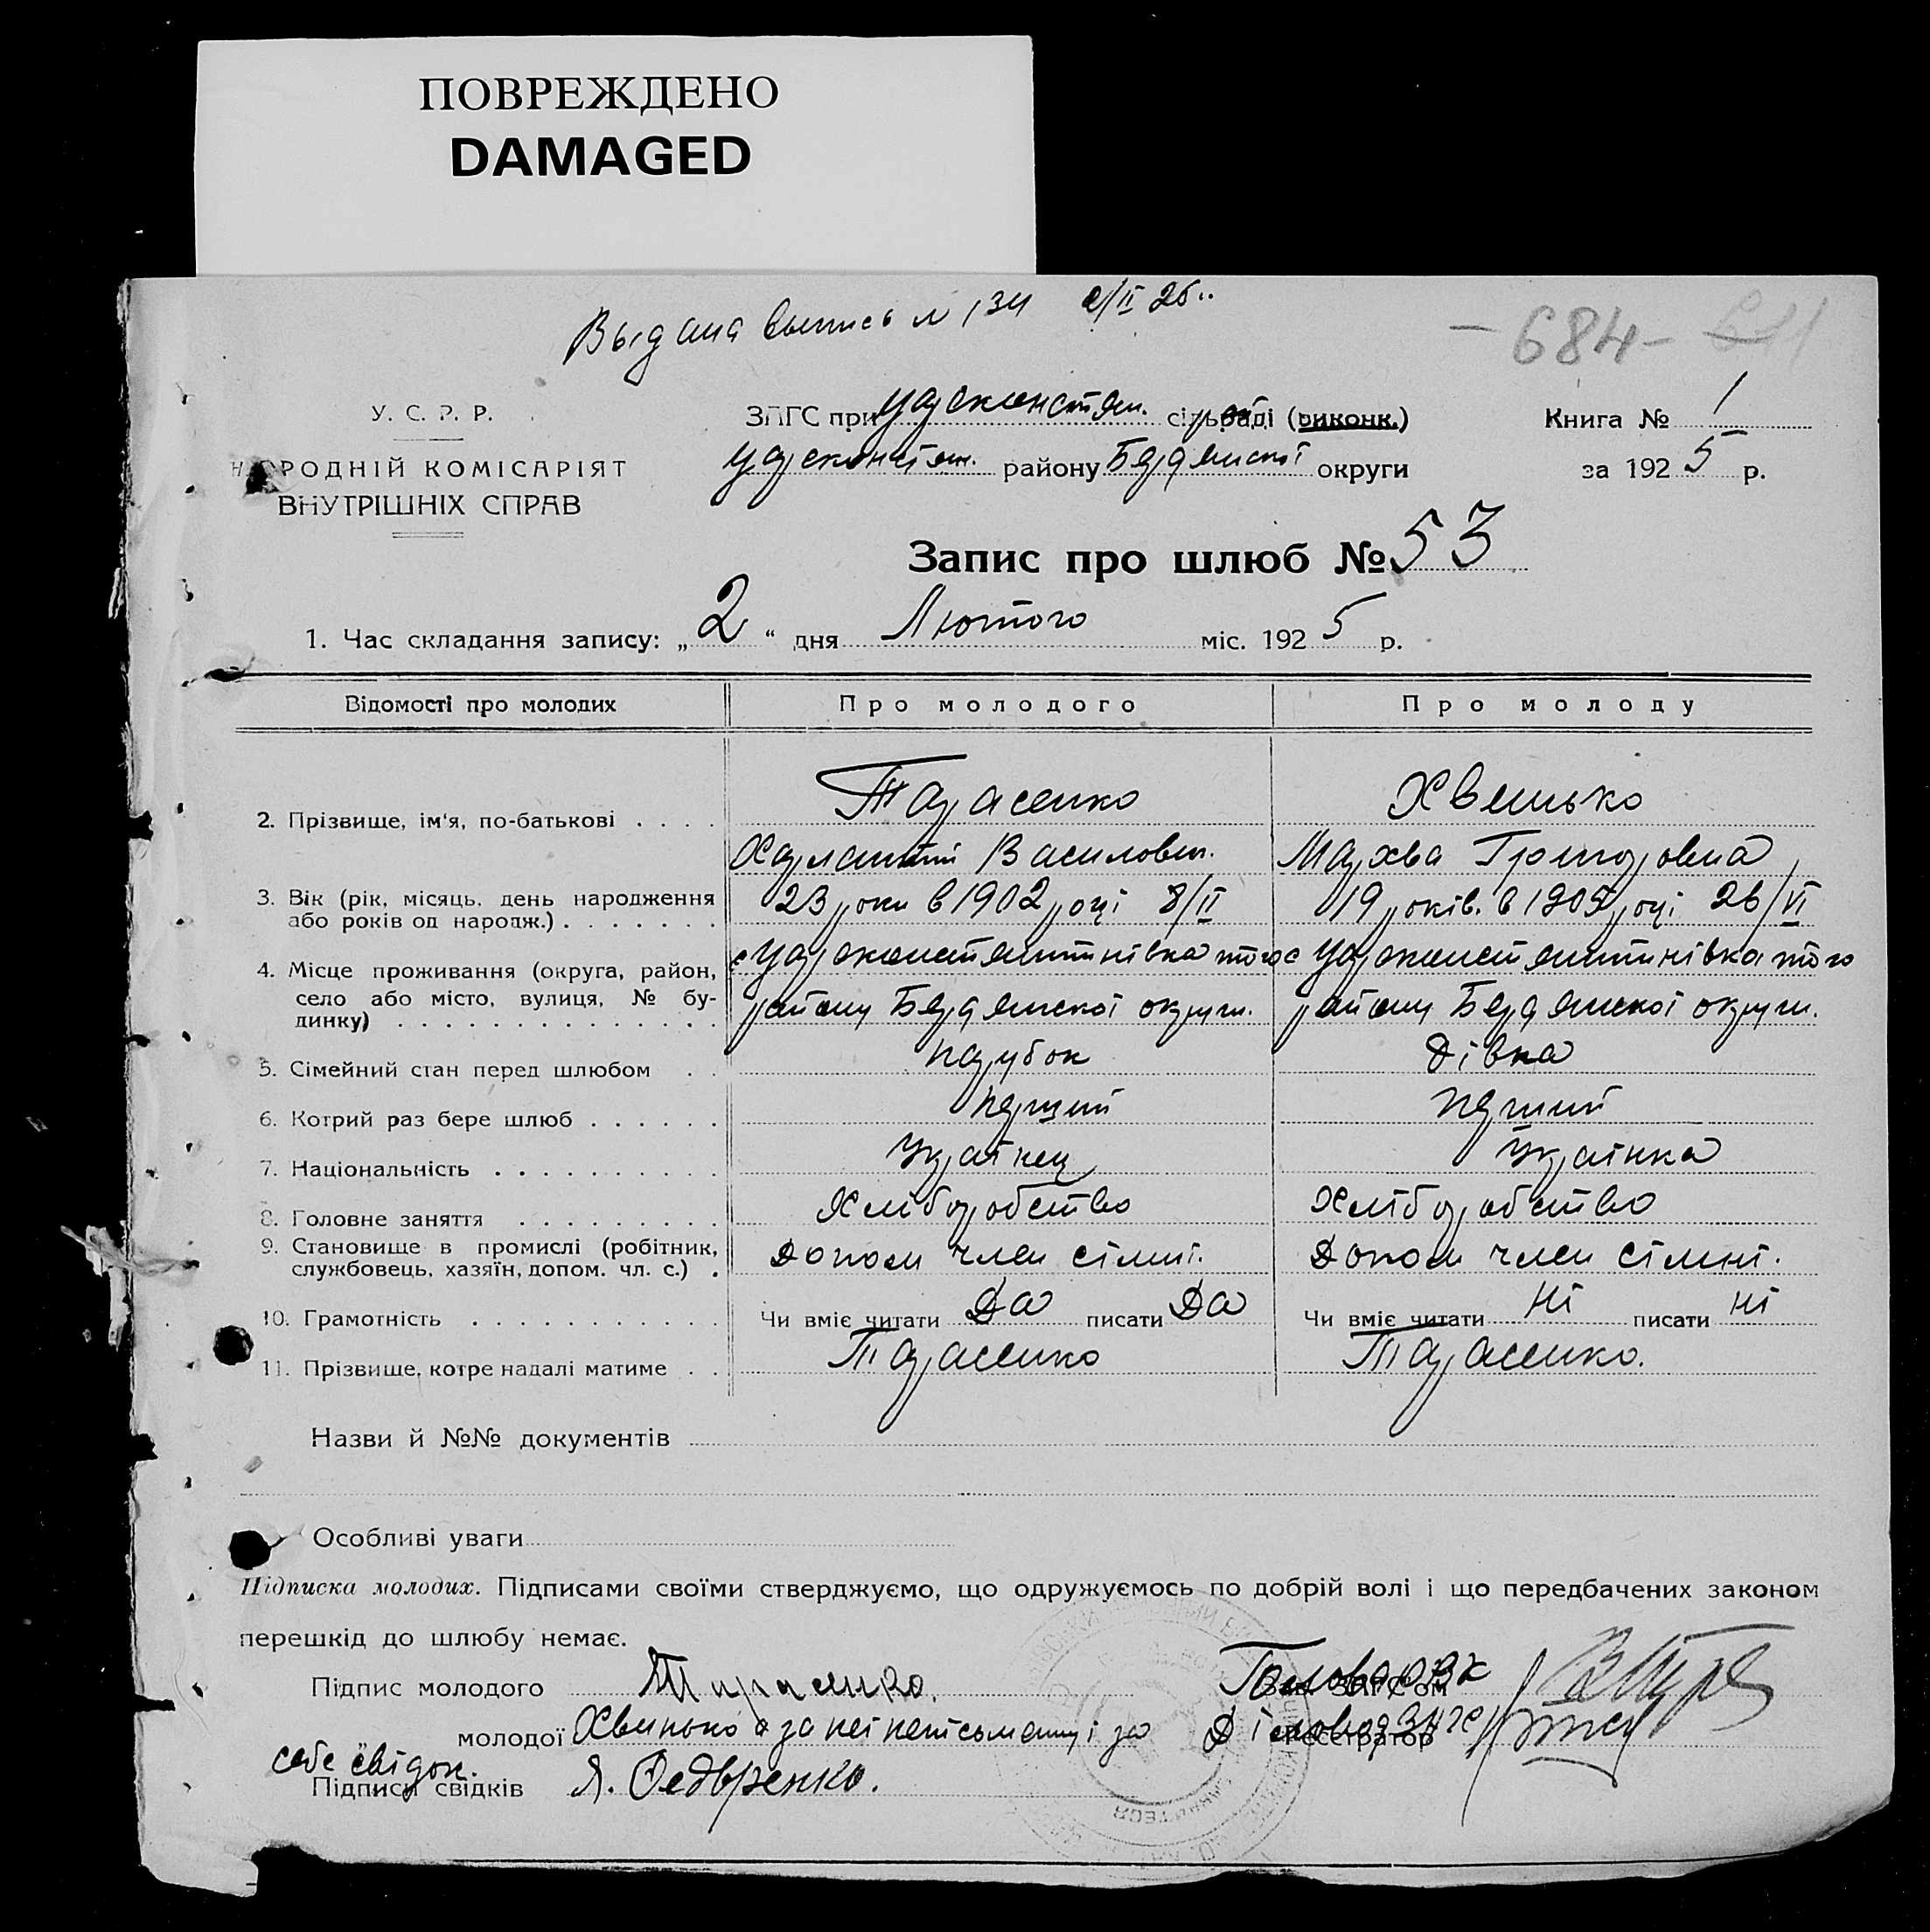 ПОВРЕЖДЕНО
DAMAGED
Выдана выпись № 134 2/II 25
- 684 -
У. С. Р. Р.
НАРОДНІЙ КОМІСАРІЯТ
ВНУТРІШНІХ СПРАВ
ЗАГС при Цареконстян. сільраді (виконк.)
Цареконстян. району Бердянскоі округи
Книга № 1
за 1925 р.
Запис про шлюб № 53
1. Час складання запису: „2“ дня Лютого міс. 1925 р.
Відомості про молодих Про молодого Про молоду
2. Прізвище, ім'я, по-батькові . . . . Тарасенко Хвенько
Харлампій Василовеч. Мархва Григоровна
3. Вік (рік, місяць, день народження 23 роки в 1902 році 8/II 19 років. в 1905 році 26/VI
або років од народж.) . . . . . . .
4. Місце проживання (округа, район, с Цареконстянтинівка того с Цареконстянтинівка того
село або місто, вулиця, № бу-
динку) . . . . . . . . . . . . . . району Бердянскоі округи. району Бердянскоі округи.
5. Сімейний стан перед шлюбом . . парубок дівка
6. Котрий раз бере шлюб . . . . . . перший перший
7. Національність . . . . . . . . . . Украінец Украінка
8. Головне заняття . . . . . . . . . Хліборобство Хліборобство
9. Становище в промислі (робітник, Допом член сімні. Допом член сімні.
службовець, хазяїн, допом. чл. с.) .
10. Грамотність . . . . . . . . . . . Чи вміє читати Да писати Да Чи вміє читати Ні писати Ні
11. Прізвище, котре надалі матиме . . Тарасенко Тарасенко.
Назви й №№ документів
Особливі уваги
Підписка молодих. Підписами своїми стверджуємо, що одружуємось по добрій волі і що передбачених законом
перешкід до шлюбу немає.
Підпис молодого Тарасенко. Голова РВК
молодої Хвенько а за неі неписьменну і за Діловод ЗАГС
себе свідок.
Підписи свідків Я. Федоренко.